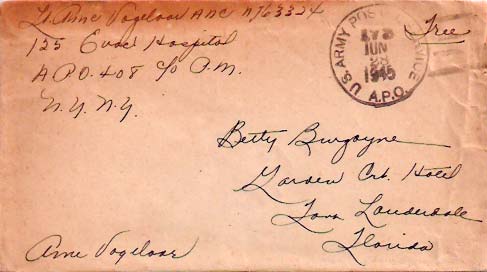 Lt. Arne Vogelaar ANC N763324
125 Evac Hospital
A.P.O. 408 c/o P.M.
N.Y. N.Y.
U.S. ARMY POSTAL SERVICE
JUN
28
1945
A.P.O.
Free
Betty Burgoyne
Garden Crt. Hotel
Lauderdale
Florida
Arne Vogelaar